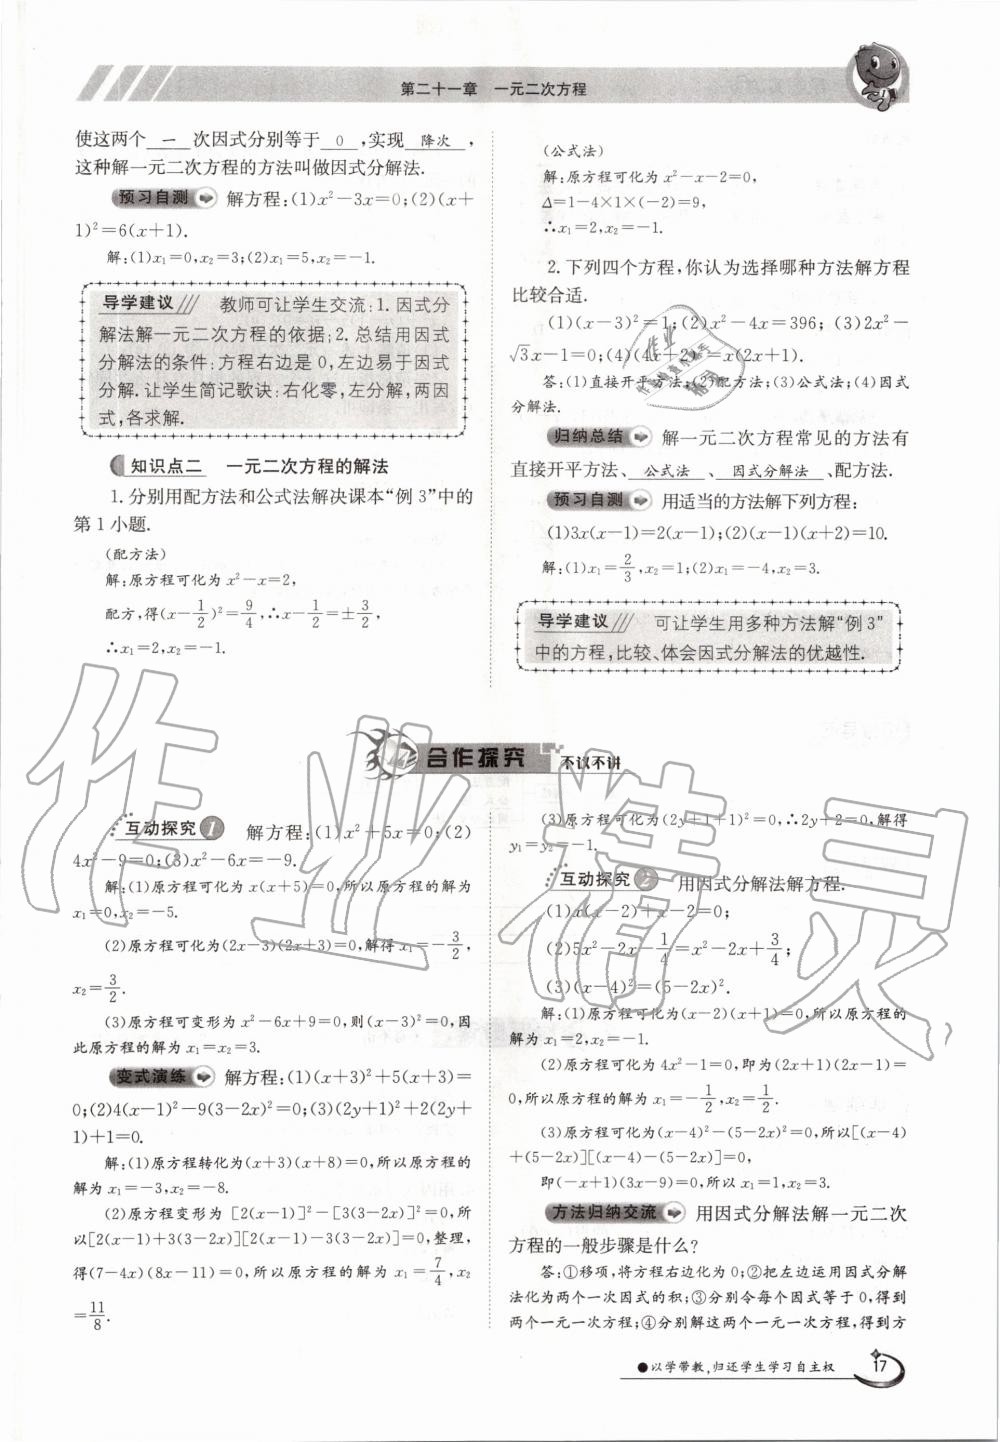 第二十一章　一元二次方程
使这两个 一 次因式分别等于 0 ,实现 降次 ,
这种解一元二次方程的方法叫做因式分解法.
预习自测 解方程:(1)x²-3x=0;(2)(x+
1)²=6(x+1).
解:(1)x₁=0,x₂=3;(2)x₁=5,x₂=-1.
导学建议 教师可让学生交流:1.因式分
解法解一元二次方程的依据;2.总结用因式
分解法的条件:方程右边是 0,左边易于因式
分解.让学生简记歌诀:右化零,左分解,两因
式,各求解.
知识点二　一元二次方程的解法
1.分别用配方法和公式法解决课本“例 3”中的
第 1 小题.
(配方法)
解:原方程可化为 x²-x=2,
配方,得(x-1/2)²=9/4,∴x-1/2=±3/2,
∴x₁=2,x₂=-1.
(公式法)
解:原方程可化为 x²-x-2=0,
Δ=1-4×1×(-2)=9,
∴x₁=2,x₂=-1.
2.下列四个方程,你认为选择哪种方法解方程
比较合适.
(1)(x-3)²=1;(2)x²-4x=396;(3)2x²-
√3x-1=0;(4)(4x+2)²=x(2x+1).
答:(1)直接开平方法;(2)配方法;(3)公式法;(4)因式
分解法.
归纳总结 解一元二次方程常见的方法有
直接开平方法、 公式法 、 因式分解法 、配方法.
预习自测 用适当的方法解下列方程:
(1)3x(x-1)=2(x-1);(2)(x-1)(x+2)=10.
解:(1)x₁=2/3,x₂=1;(2)x₁=-4,x₂=3.
导学建议 可让学生用多种方法解“例 3”
中的方程,比较、体会因式分解法的优越性.
合作探究 不议不讲
互动探究 1 解方程:(1)x²+5x=0;(2)
4x²-9=0;(3)x²-6x=-9.
解:(1)原方程可化为 x(x+5)=0,所以原方程的解为
x₁=0,x₂=-5.
(2)原方程可化为(2x-3)(2x+3)=0,解得 x₁=-3/2,
x₂=3/2.
(3)原方程可变形为 x²-6x+9=0,则(x-3)²=0,因
此原方程的解为 x₁=x₂=3.
变式演练 解方程:(1)(x+3)²+5(x+3)=
0;(2)4(x-1)²-9(3-2x)²=0;(3)(2y+1)²+2(2y+
1)+1=0.
解:(1)原方程转化为(x+3)(x+8)=0,所以原方程的
解为 x₁=-3,x₂=-8.
(2)原方程变形为 [2(x-1)]²-[3(3-2x)]²=0,所
以[2(x-1)+3(3-2x)][2(x-1)-3(3-2x)]=0,整理,
得(7-4x)(8x-11)=0,所以原方程的解为 x₁=7/4,x₂
=11/8.
(3)原方程可化为(2y+1+1)²=0,∴2y+2=0,解得
y₁=y₂=-1.
互动探究 2 用因式分解法解方程.
(1)x(x-2)+x-2=0;
(2)5x²-2x-1/4=x²-2x+3/4;
(3)(x-4)²=(5-2x)².
解:(1)原方程可化为(x-2)(x+1)=0,所以原方程的
解为 x₁=2,x₂=-1.
(2)原方程可化为 4x²-1=0,即为(2x+1)(2x-1)=
0,所以原方程的解为 x₁=-1/2,x₂=1/2.
(3)原方程可化为(x-4)²-(5-2x)²=0,所以[(x-4)
+(5-2x)][(x-4)-(5-2x)]=0,
即(-x+1)(3x-9)=0,所以 x₁=1,x₂=3.
方法归纳交流 用因式分解法解一元二次
方程的一般步骤是什么?
答:①移项,将方程右边化为 0;②把左边运用因式分解
法化为两个一次因式的积;③分别令每个因式等于 0,得到
两个一元一次方程;④分别解这两个一元一次方程,得到方
●以学带教,归还学生学习自主权
17
作业精灵